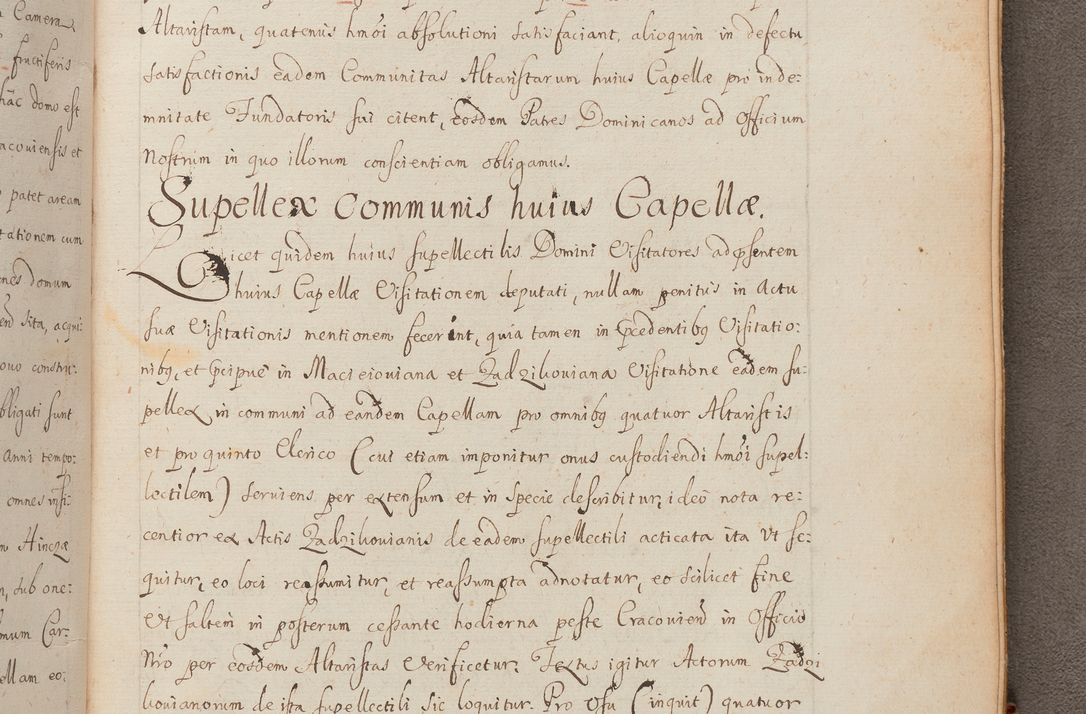 Camera
fructiferis
hãc domo est
acoviensis et
patet aream
tationem cum
nes domum
sita, acqui:
ovo constru:
bligati sunt
Anni tempo:
omnes insi:
Hincza
sub one:
mum Car:
ellam eo:
Altaristam, quatenus hmõi absolutioni satisfaciant, alioquin in defectu
satisfactionis eadem Communitas Altaristarum huius Capellæ pro inde:
mnitate Fundatoris sui citent, eosdem Patres Dominicanos ad Officium
Nostrum in quo illorum conscientiam obligamus.
Supellex Communis huius Capellæ.
Licet quidem huius supellectilis Domini Visitatores ad pñsentem
huius Capellæ Visitationem deputati, nullam penitus in Actu
suæ Visitationis mentionem fecerint, quia tamen in pcedentibq Visitatio:
nibq, et pcipuè in Macieioviana et Zadzikoviana Visitatione eadem su:
pellex in communi ad eandem Capellam pro omnibq quatuor Altaristis
et pro quinto Clerico (cui etiam imponitur onus custodiendi hmõi supel:
lectilem) serviens per extensum et in specie describitur, ideò nota re:
centior ex Actis Zadzikovianis de eadem supellectili acticata ita ut se:
quitur, eo loci reassumitur, et reassumpta adnotatur, eo scilicet fine
Ut saltem in posterum cessante hodierna peste Cracovien̄ in Officio
Nrõ per eosdem Altaristas verificetur. Textus igitur Actorum Zadzi
kovianorum de ista supellectili sic loquitur. Pro Usu (inquit) quatuor